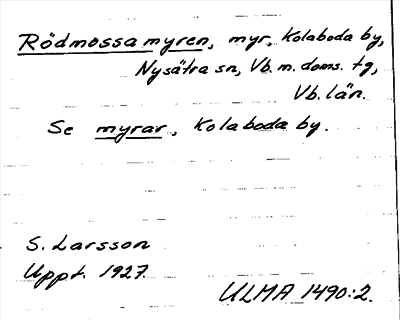 Rödmossamyren, myr, Kolaboda by,
Nysätra sn, Vb. m. doms. tg,
Vb. län.
Se myrar, Kolaboda by.
S. Larsson
Uppt. 1927.
ULMA 1490:2.